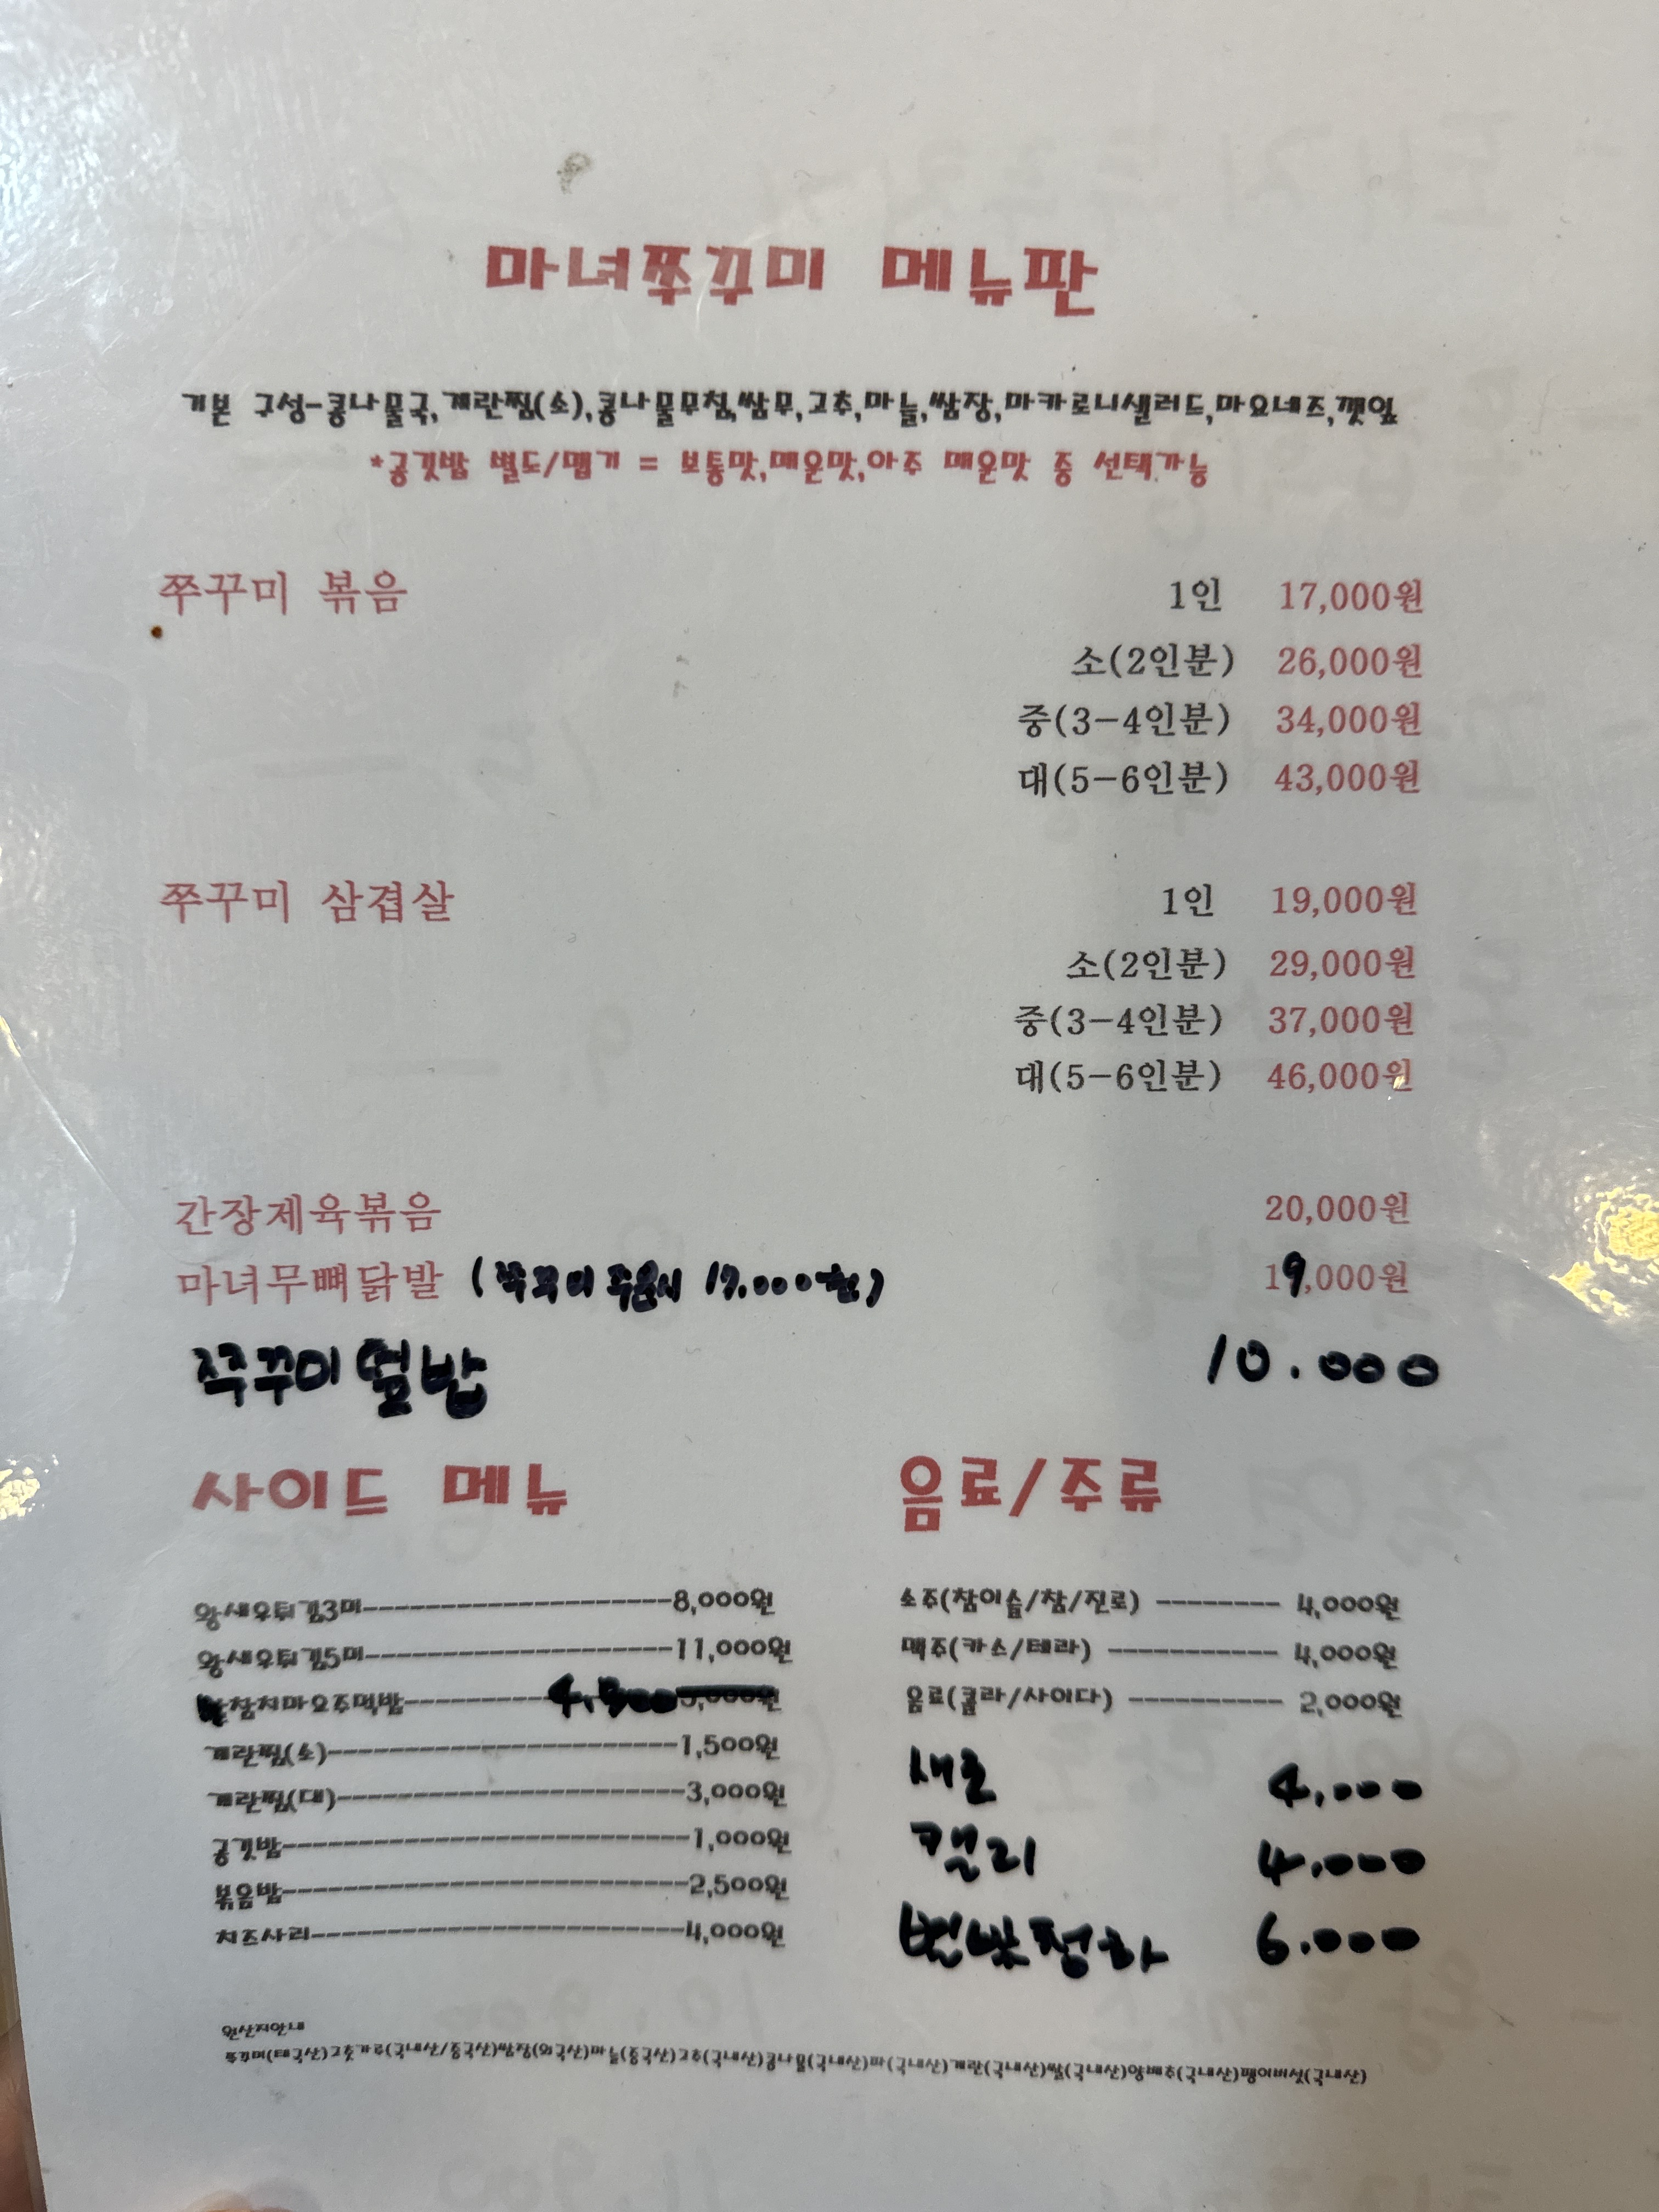 마녀쭈꾸미 메뉴판
기본 구성-콩나물국,계란찜(소),콩나물무침,쌈무,고추,마늘,쌈장,마카로니샐러드,마요네즈,깻잎
*공깃밥 별도/맵기 = 보통맛,매운맛,아주 매운맛 중 선택가능
쭈꾸미 볶음 1인 17,000원
소(2인분) 26,000원
중(3-4인분) 34,000원
대(5-6인분) 43,000원
쭈꾸미 삼겹살 1인 19,000원
소(2인분) 29,000원
중(3-4인분) 37,000원
대(5-6인분) 46,000원
간장제육볶음 20,000원
마녀무뼈닭발 (쭈꾸미 주문시 17.000원) 19,000원
쭈꾸미덮밥 10.000
사이드 메뉴
왕새우튀김3미 8,000원
왕새우튀김5미 11,000원
참치마요주먹밥
계란찜(소) 1,500원
계란찜(대) 3,000원
공깃밥 1,000원
볶음밥 2,500원
치즈사리 4,000원
음료/주류
소주(참이슬/참/진로) 4,000원
맥주(카스/테라) 4,000원
음료(콜라/사이다) 2,000원
새로 4.000
켈리 4.000
별빛청하 6.000
원산지안내